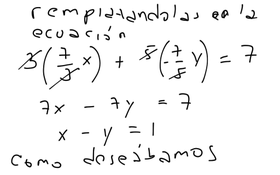 remplazandolas en la
ecuación
3(7/3 x) + 5(-7/5 y) = 7
7x - 7y = 7
x - y = 1
como deseabamos